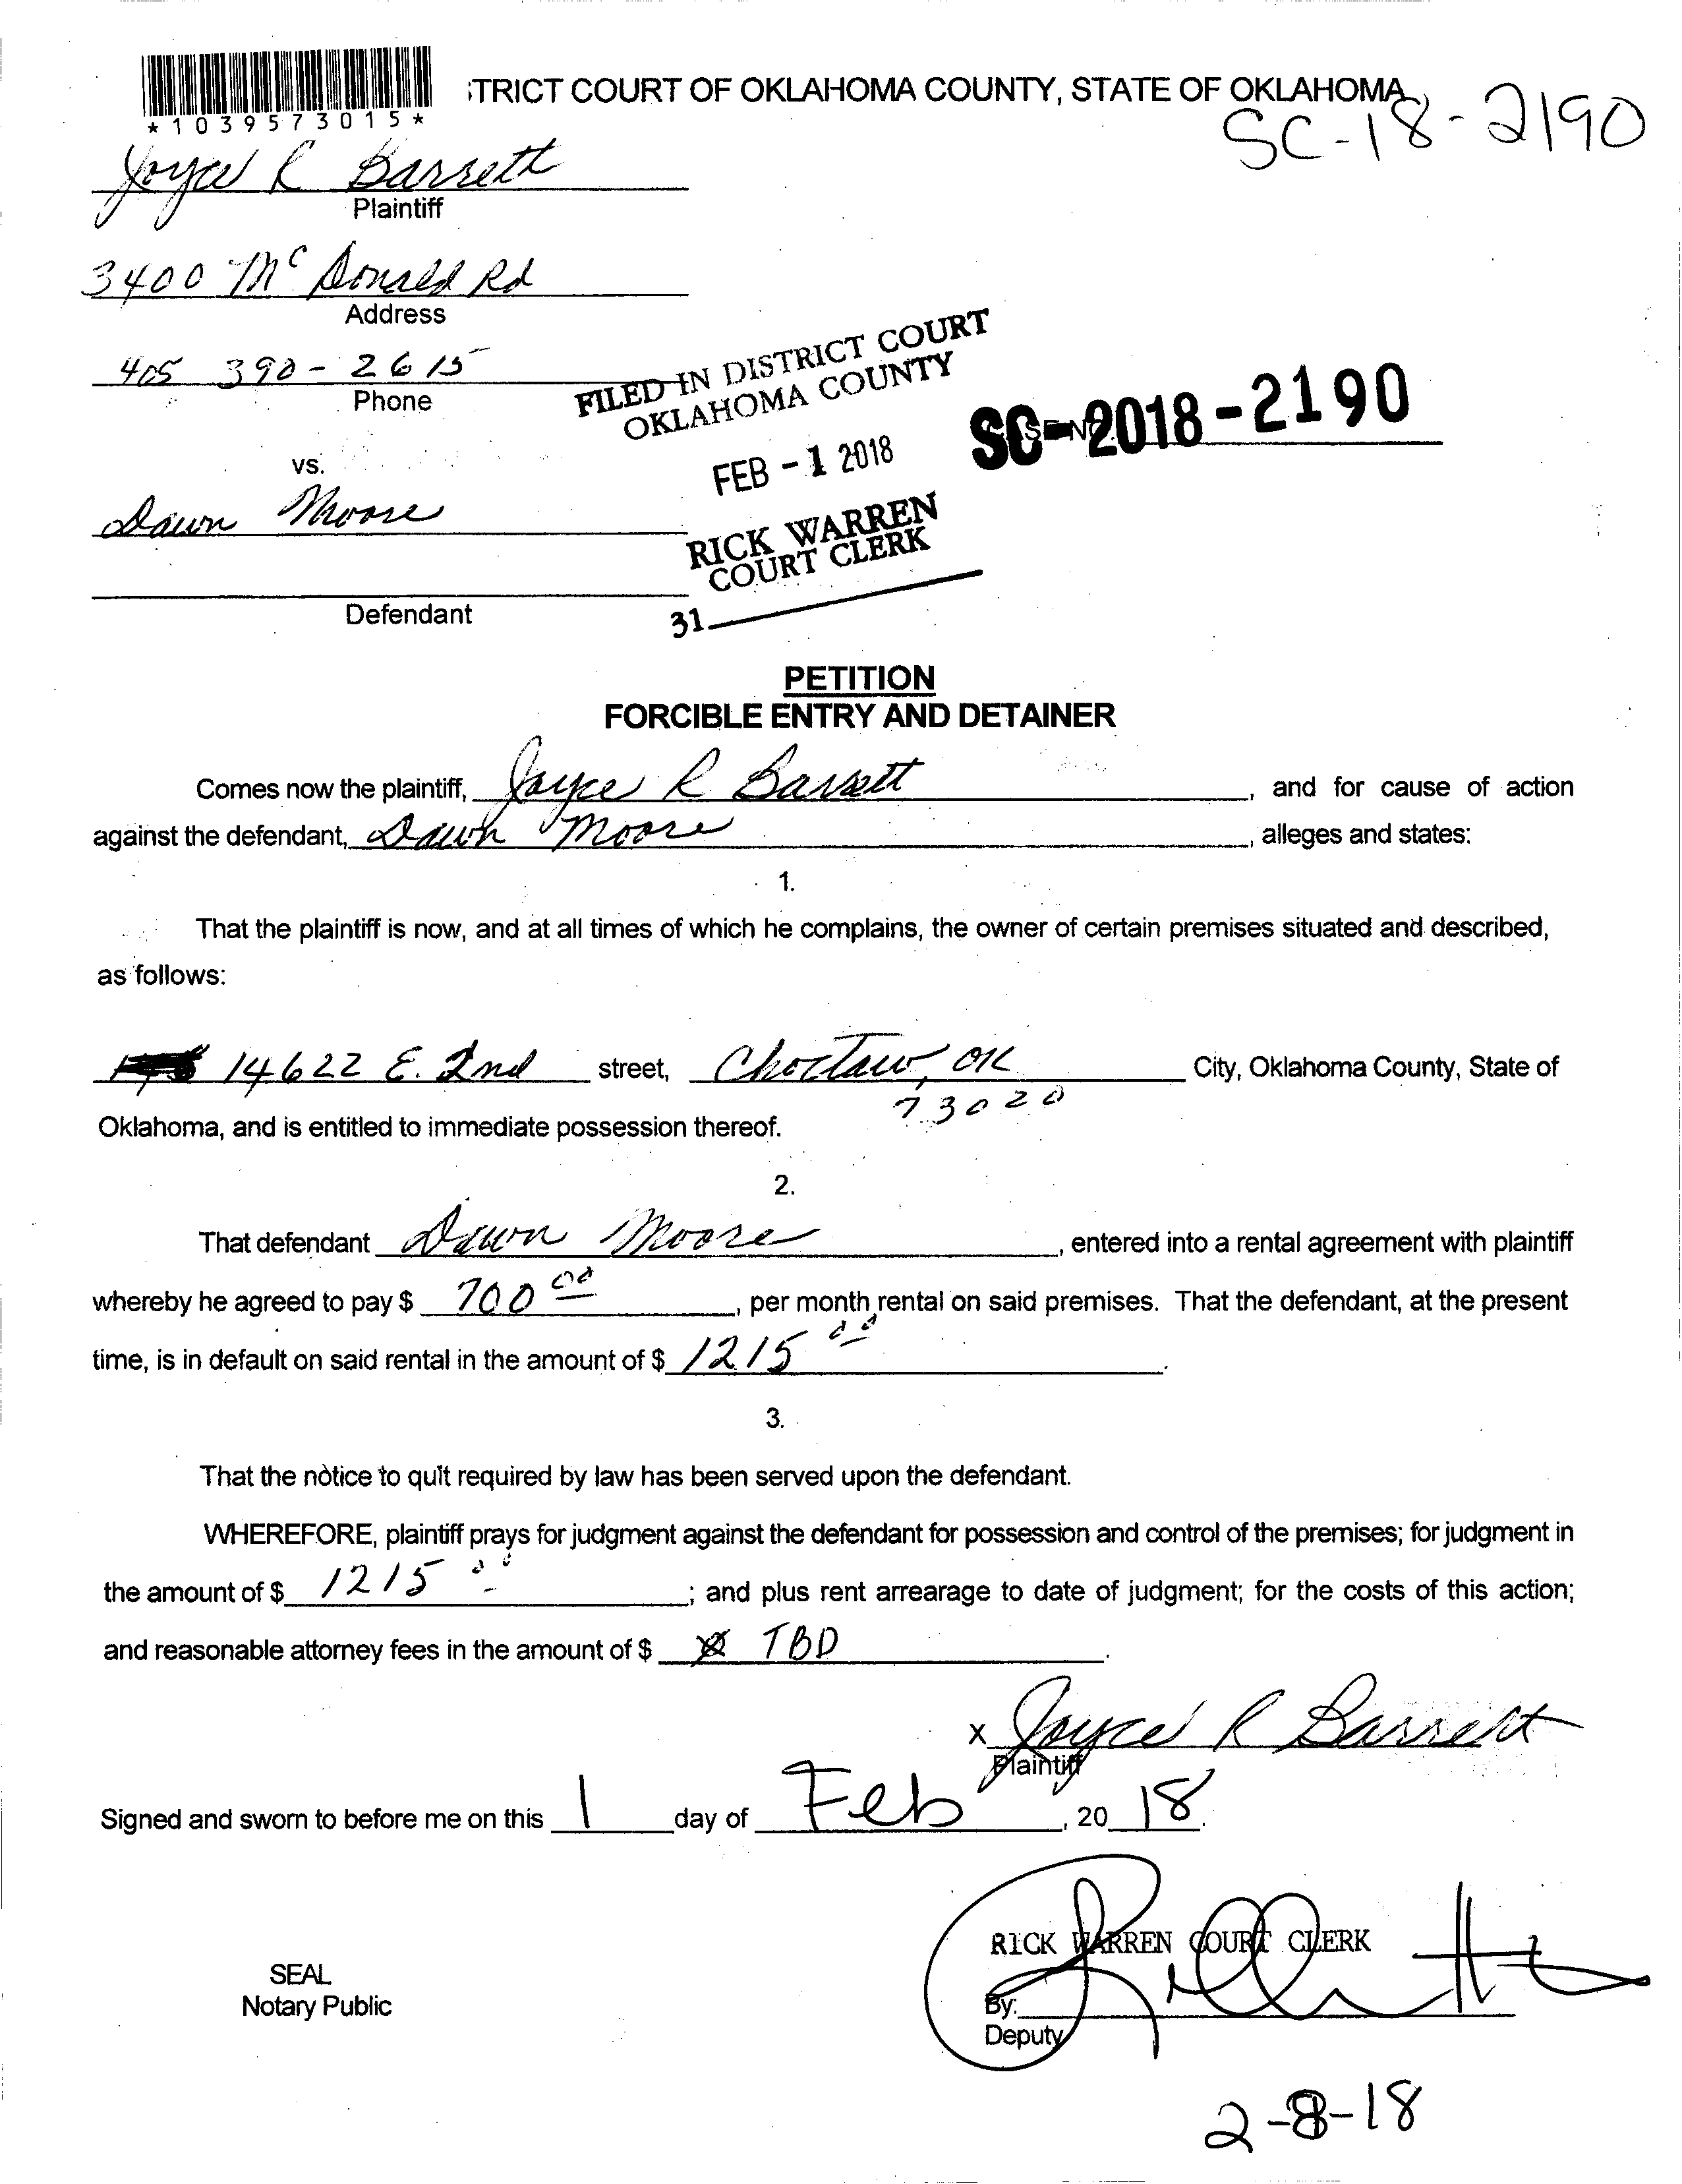 *1039573015*
TRICT COURT OF OKLAHOMA COUNTY, STATE OF OKLAHOMA
SC-18-2190
Joyce R Barrett
Plaintiff
3400 Mc Donald Rd
Address
405 390-2615
Phone
FILED IN DISTRICT COURT
OKLAHOMA COUNTY
FEB - 1 2018
SC-2018-2190
vs.
Dawn Moore
RICK WARREN
COURT CLERK
Defendant
31
PETITION
FORCIBLE ENTRY AND DETAINER
Comes now the plaintiff, Joyce R Barrett, and for cause of action
against the defendant, Dawn Moore, alleges and states:
1.
That the plaintiff is now, and at all times of which he complains, the owner of certain premises situated and described,
as follows:
14622 E. 2nd street, Choctaw, OK City, Oklahoma County, State of
73020
Oklahoma, and is entitled to immediate possession thereof.
2.
That defendant Dawn Moore, entered into a rental agreement with plaintiff
whereby he agreed to pay $ 700 00, per month rental on said premises. That the defendant, at the present
time, is in default on said rental in the amount of $ 1215 00.
3.
That the notice to quit required by law has been served upon the defendant.
WHEREFORE, plaintiff prays for judgment against the defendant for possession and control of the premises; for judgment in
the amount of $ 1215 00; and plus rent arrearage to date of judgment; for the costs of this action;
and reasonable attorney fees in the amount of $ TBD.
x Joyce R Barrett
Plaintiff
Signed and sworn to before me on this 1 day of Feb, 20 18.
RICK WARREN COURT CLERK
SEAL
Notary Public
By:
Deputy
2-8-18